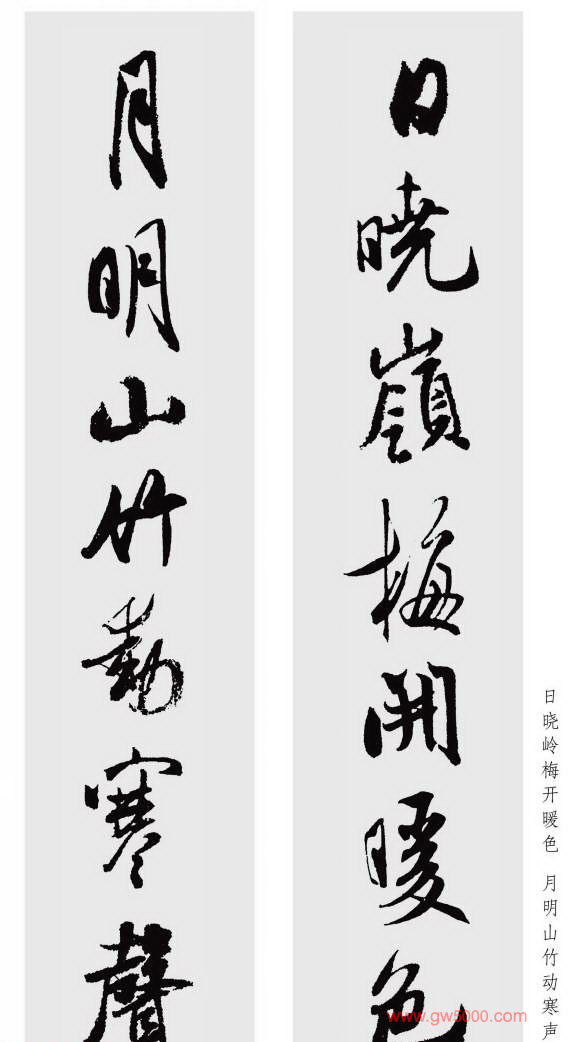 日曉嶺梅開暖色
月明山竹動寒聲
日晓岭梅开暖色 月明山竹动寒声
www.gw5000.com